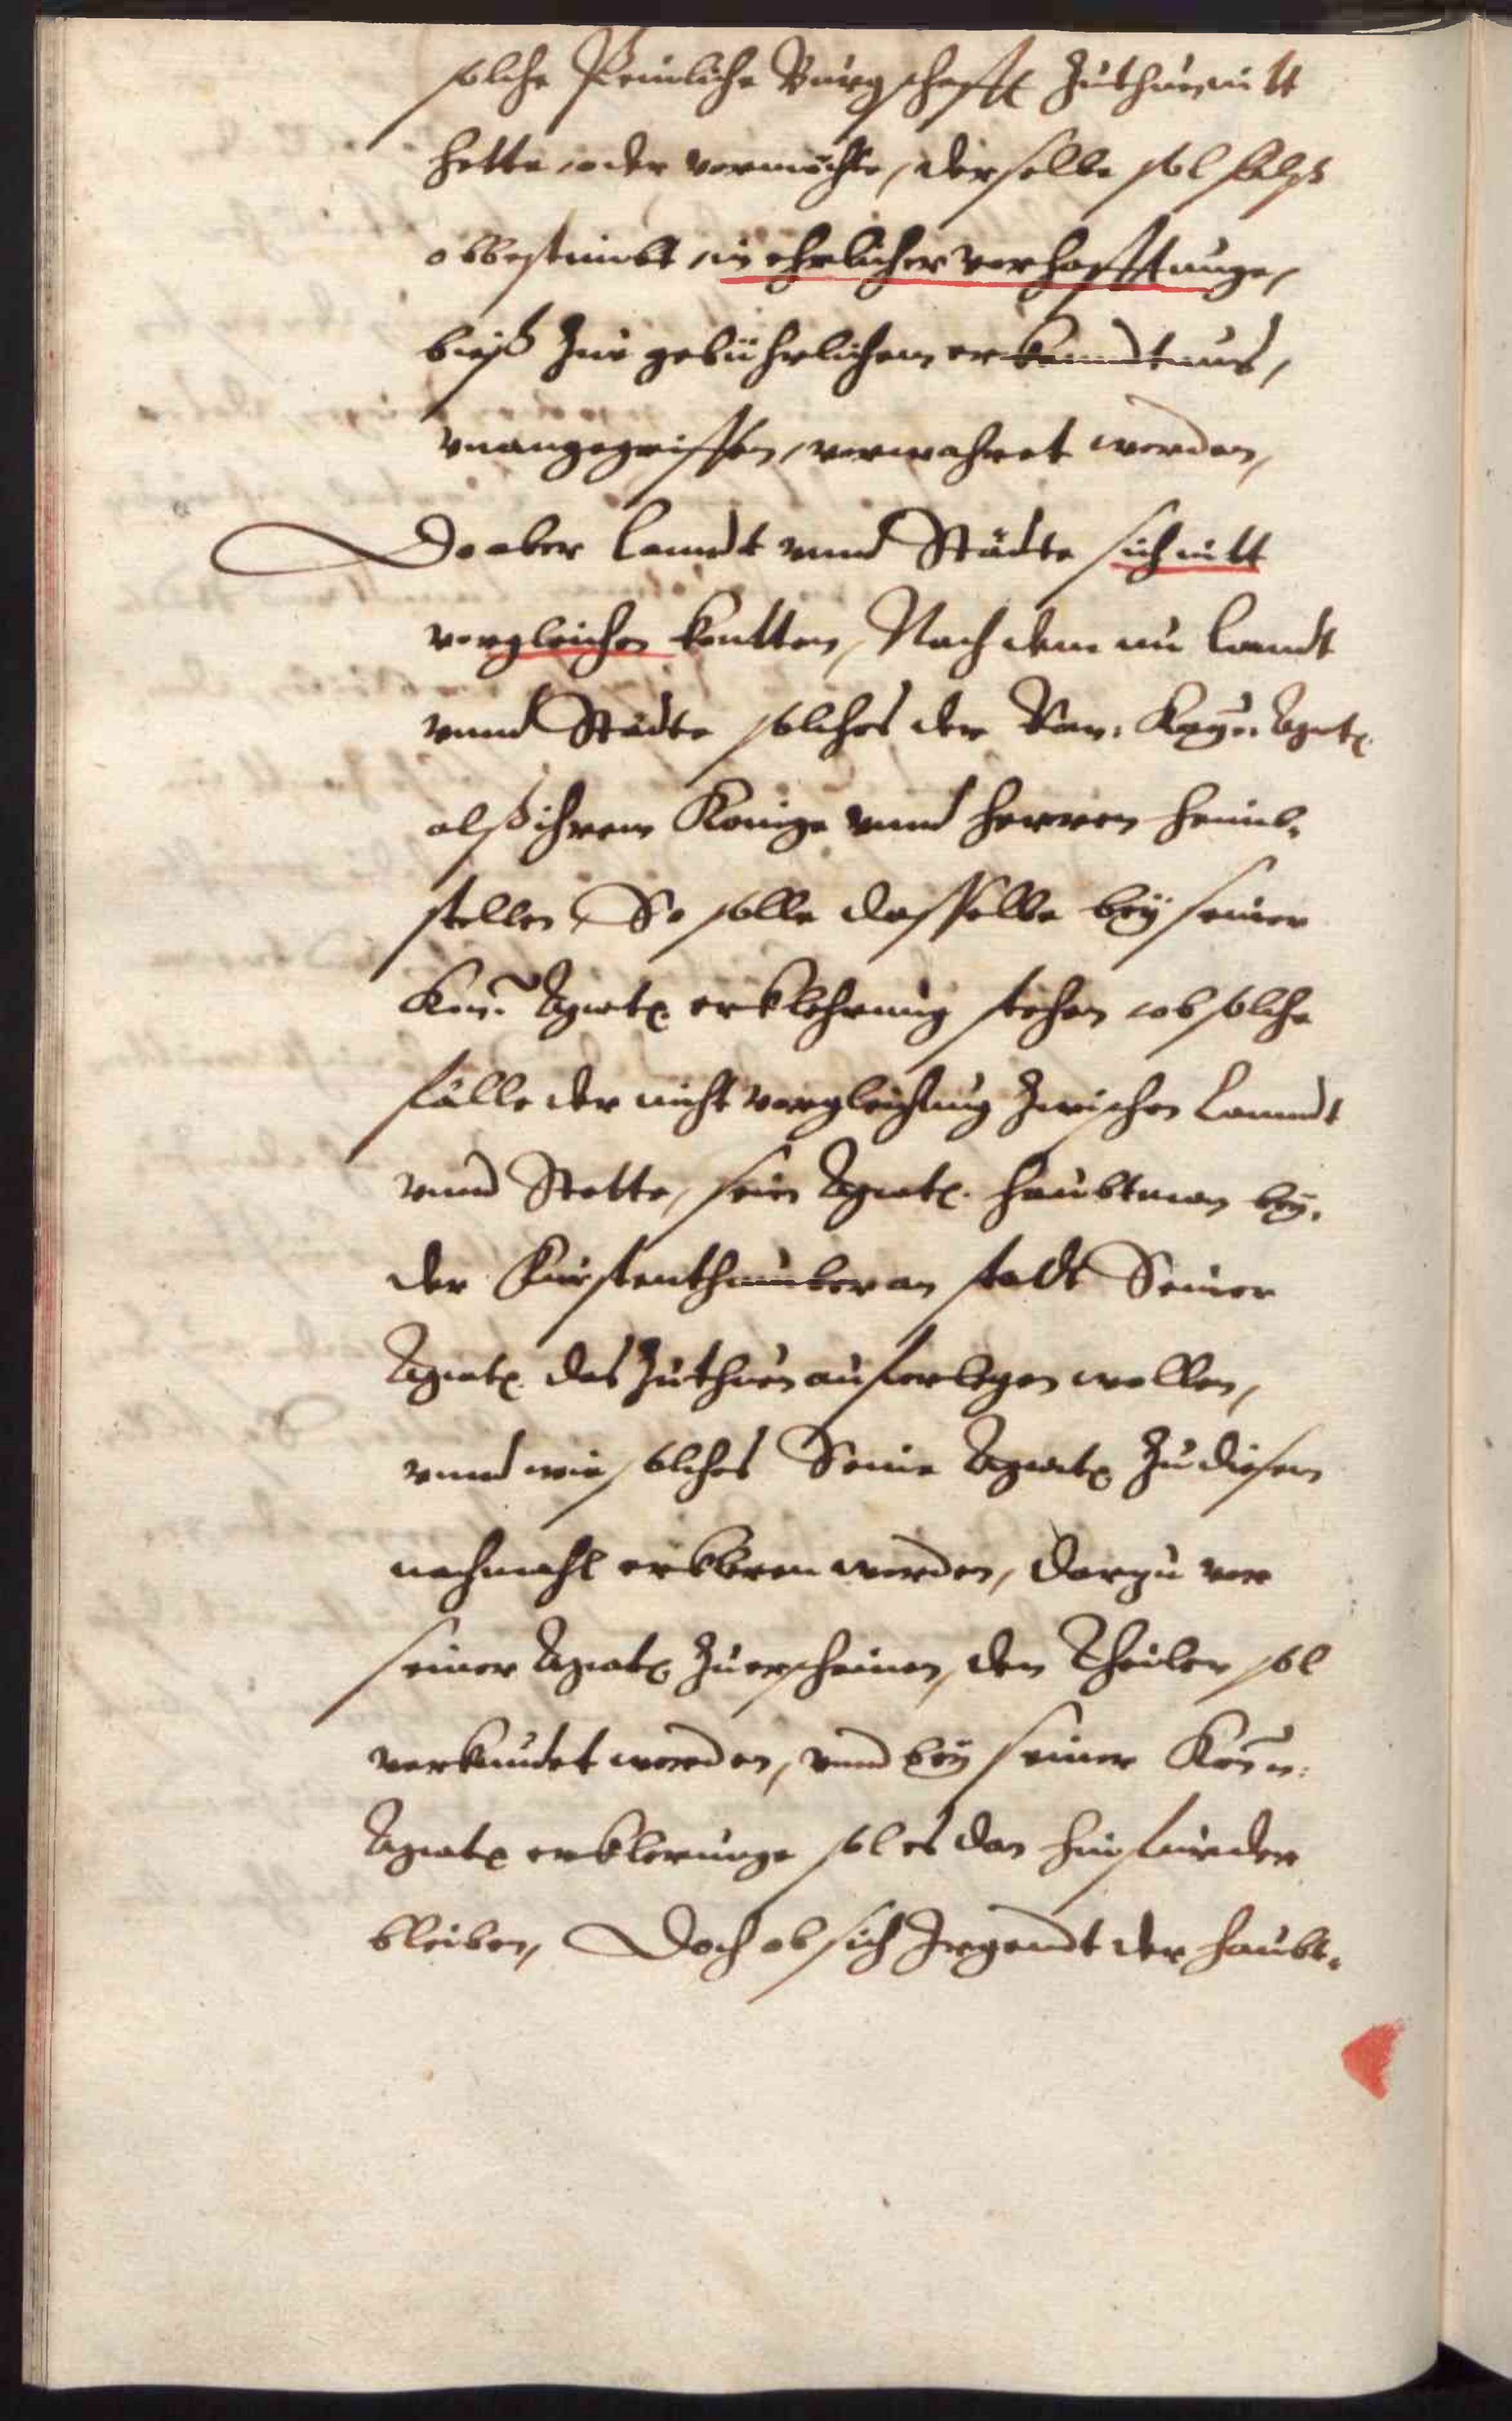 solche Peinliche Burgschafft Zuthun, nitt
hette, oder vermöchte, derselbe sol falß
obbestimbt, in ehrlicher verhafftunge,
bieß zue gebührlichem erkanndtnus,
vnangegriffen, verwahret werden,
Do aber Lanndt vnnd Städte sich nitt
vergleichen kontten, Nach dem nu Landt
vnnd Städte solches der Röm: Kay: Maytt:
alß ihrem Könige vnnd Herren heimb-
stellen, So solle dasselbe bey seiner
Kön: Maytt: erklehrung stehen, ob solche
fälle der nicht vergleichung zwischen Lanndt
vnnd Stette, sein Maytt: Haubtman bey-
der Fürstenthumber an stadt Seiner
Maytt: das Zuthun auferlegen wollen,
vnnd wie solches Seine Maytt: Zu diesem
nachmahl erkleren werden, darzu vor
seiner Maytt: Zuerscheinen, den Theilen sol
verkundet werden, vnnd bey seiner Kön:
Maytt: erklerunge sol es dan hinfurder
bleiben, Doch ob sich Irgendt der Haubt-